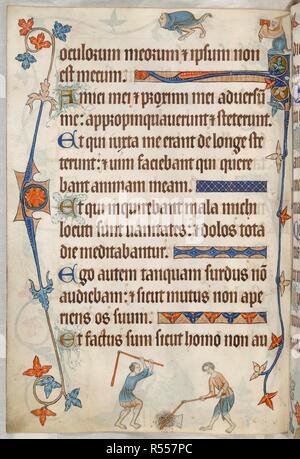 oculorum meorum ⁊ ipsum non
est mecum.
Amici mei ⁊ proximi mei adversū
me: appropinquaverunt ⁊ steterunt.
Et qui iuxta me erant de longe ste
terunt: ⁊ vim faciebant qui quere
bant animam meam.
Et qui inquirebant mala michi
locuti sunt vanitates: ⁊ dolos tota
die meditabantur.
Ego autem tanquam surdus nō
audiebam: ⁊ sicut mutus non ape
riens os suum.
Et factus sum sicut homo non au
alamy
Image ID: R557PC
www.alamy.com